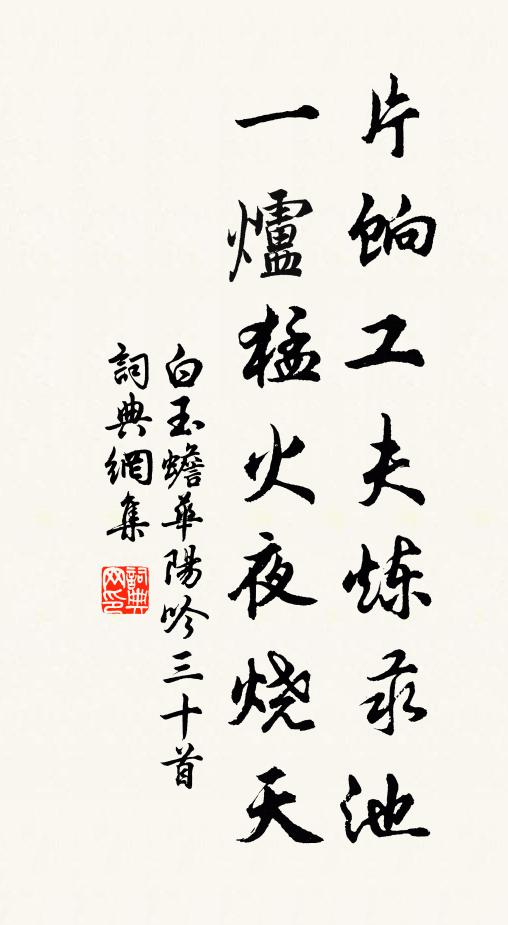 片餉工夫炼汞池
一爐猛火夜烧天
白玉蟾華陽吟三十首
詞典網集
詞典
网印